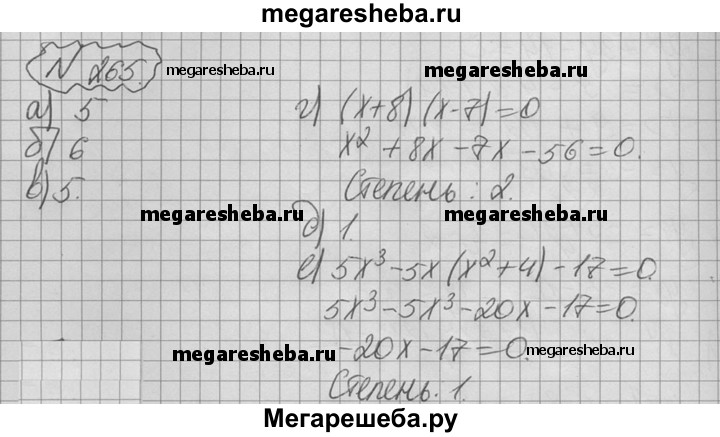 megaresheba.ru
N 265
megaresheba.ru
megaresheba.ru
а) 5
б) 6
в) 5.
г) (x+8)(x-7)=0
x² + 8x - 7x - 56 = 0.
Степень: 2.
megaresheba.ru
megaresheba.ru
д) 1.
е) 5x³ - 5x(x²+4) - 17 = 0.
5x³ - 5x³ - 20x - 17 = 0.
megaresheba.ru
-20x - 17 = 0.
megaresheba.ru
Степень: 1.
Мегарешеба.ру